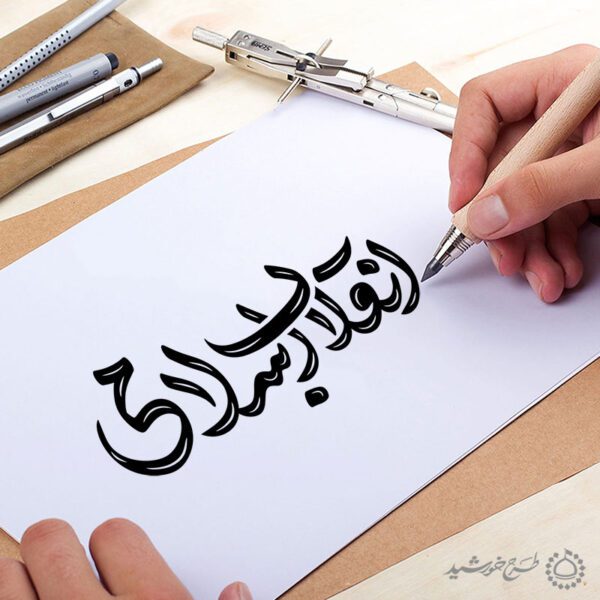 انقلاب اسلامی
طرح خورشید